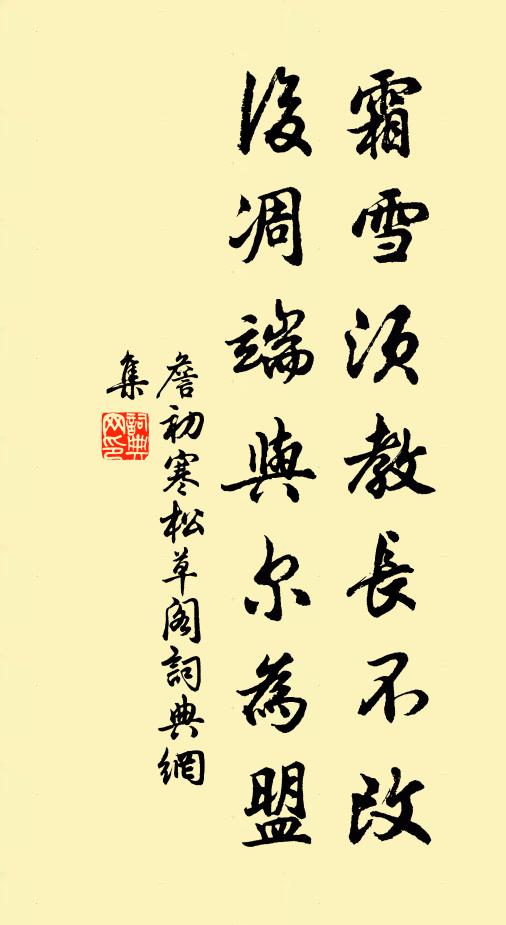 霜雪須教長不改
後凋端與尔為盟
詹初寒松草阁詞典網
集
詞典网印